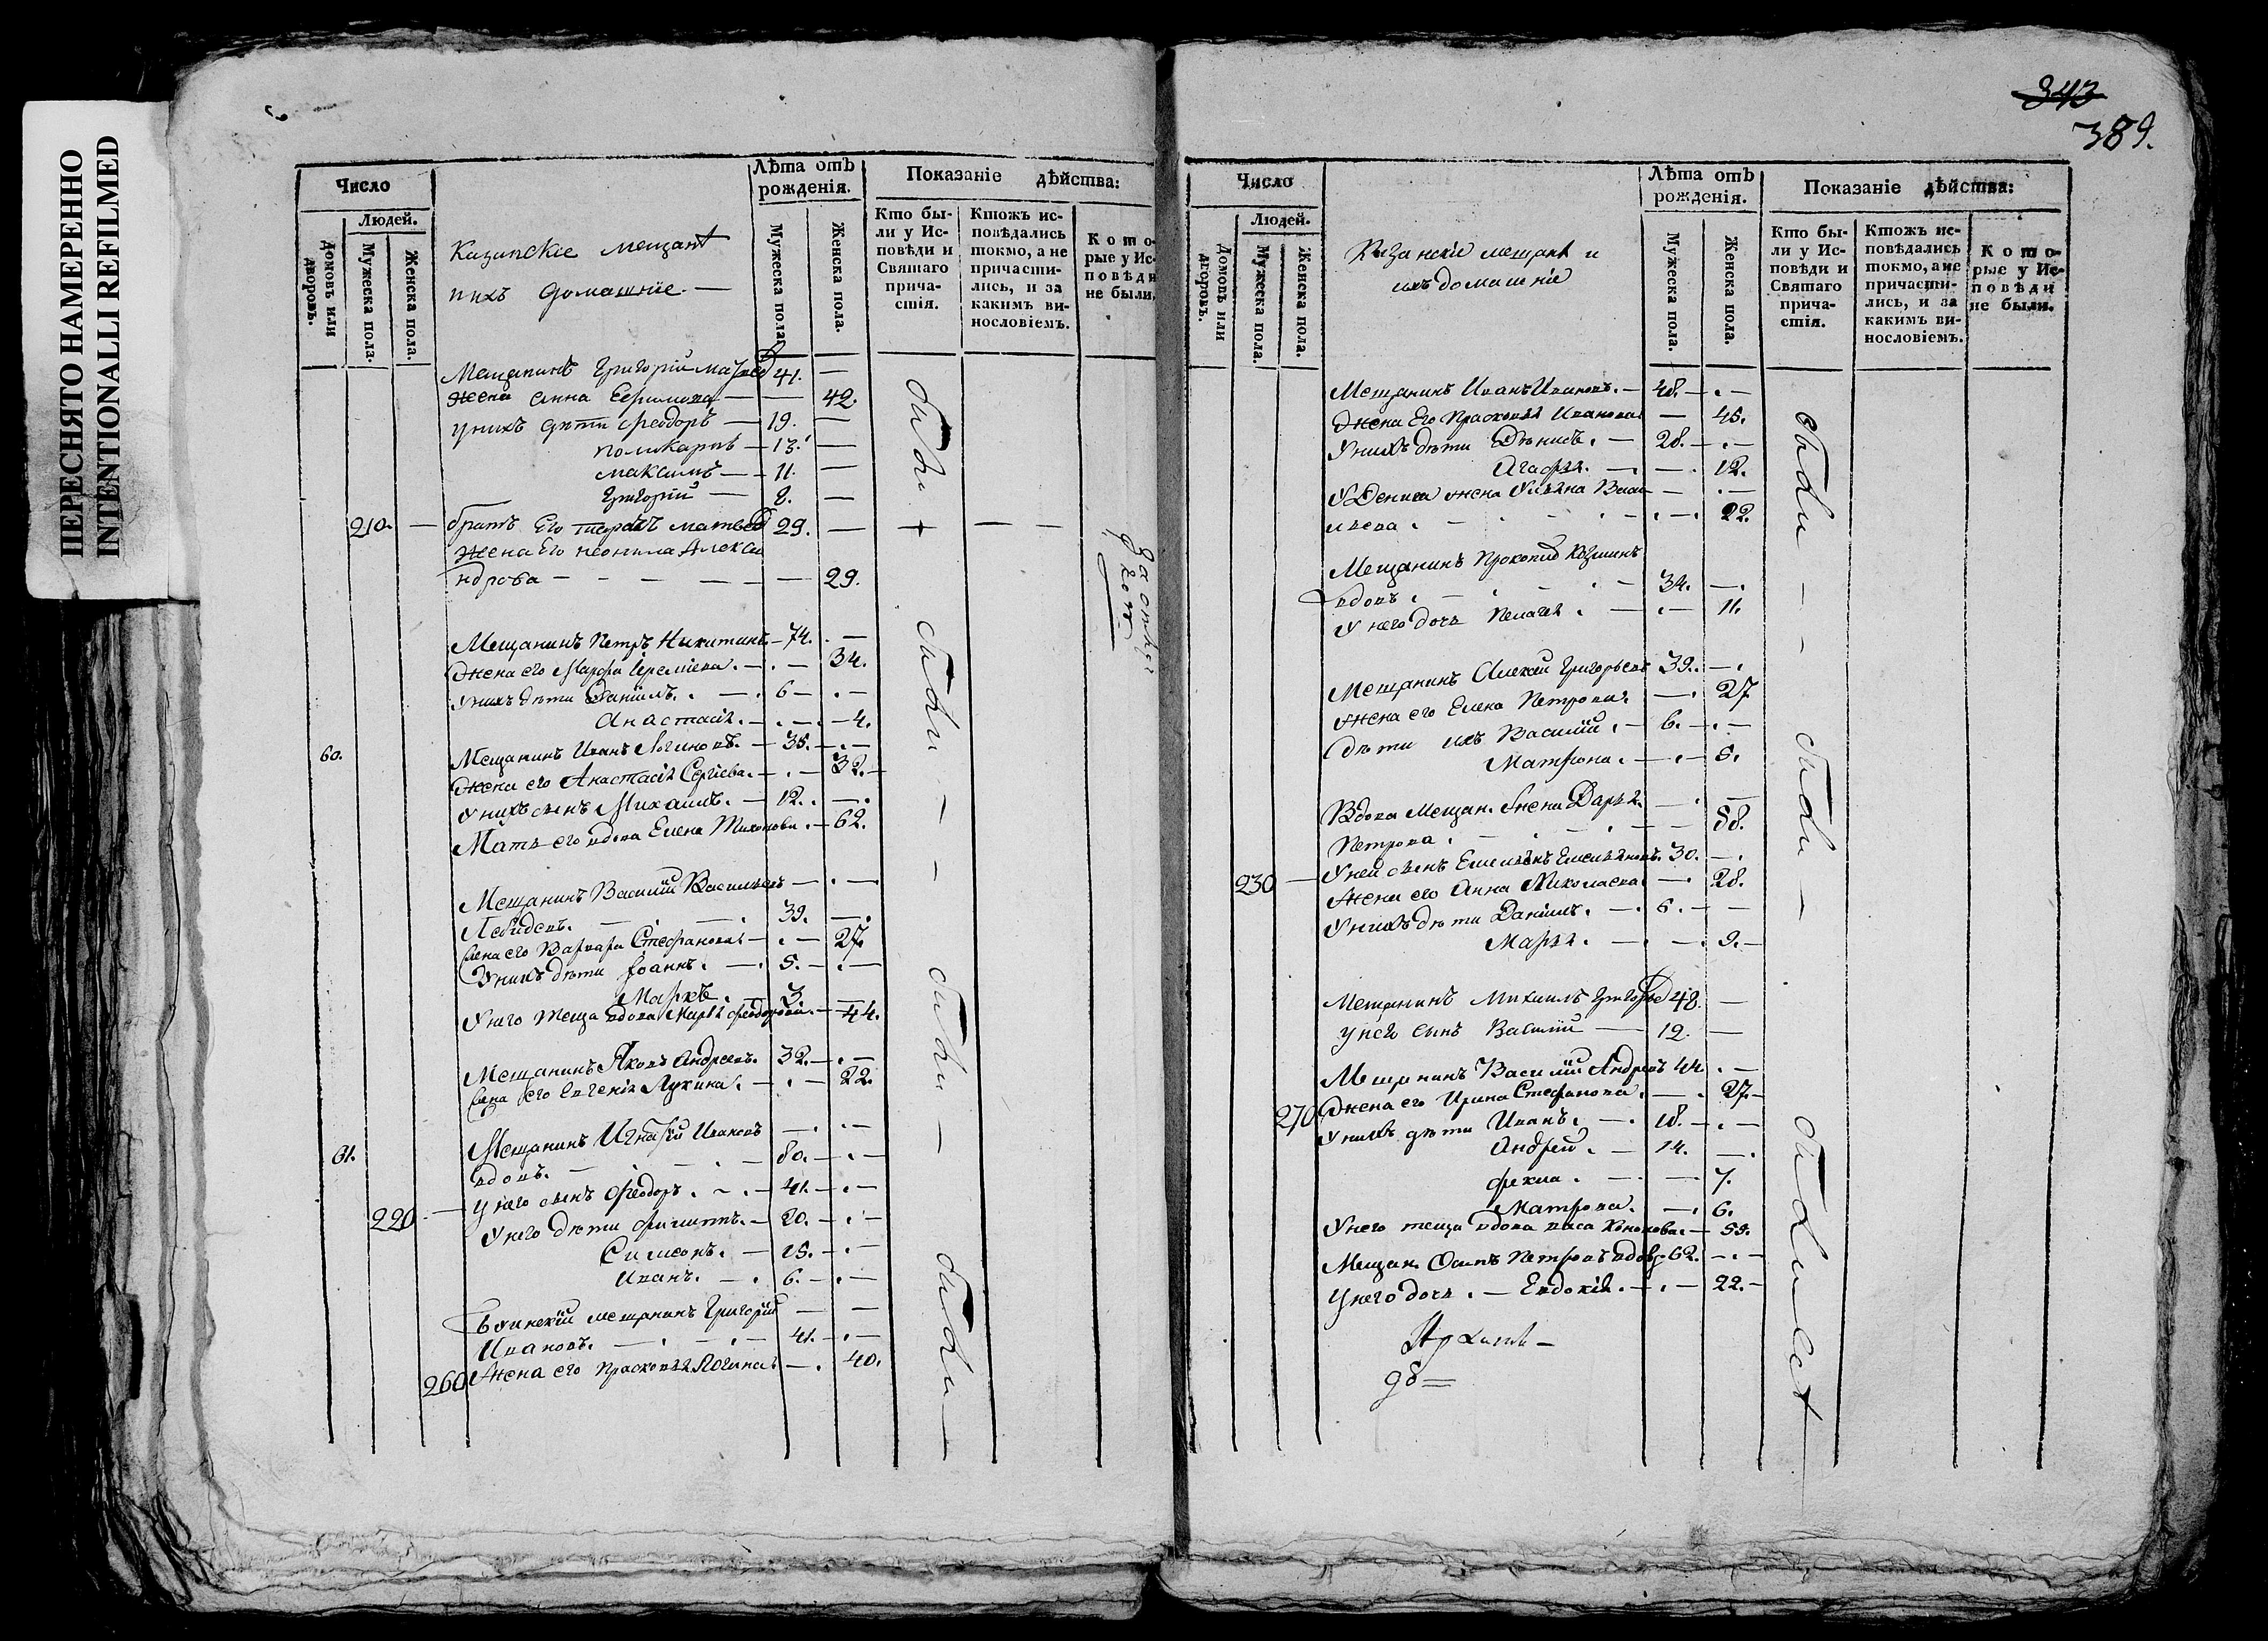 ПЕРЕСНЯТО НАМЕРЕННО
INTENTIONALLI REFILMED
Число
Людей.
Домовъ или дворовъ.
Мужеска пола.
Женска пола.
Казанскіе мещанѣ
ихъ домашніе. —
Лѣта отъ рожденія.
Мужеска пола.
Женска пола.
Показаніе дѣйства:
Кто бы-
ли у Ис-
повѣди и
Святаго
прича-
стія.
Ктожъ ис-
повѣдались
токмо, а не
причасти-
лись, и за
какимъ ви-
нословіемъ.
Кото-
рые у Ис-
повѣди
не были.
Мещанинъ Григорій 41. —
жена Анна Ефимова — — 42.
у нихъ дѣти Феодоръ — 19. —
поликарпъ — 13. —
максимъ — 11. —
Григорій — 8. —
210. — братъ Его матвеев 29. — + — —
жена Его неонила Алекса
ндрова — — — — 29.
Мещанинъ Петръ Никитинъ — 74. . —
Жена его Марфа — . — 34.
У нихъ дѣти Даніилъ. — 6 — . —
Анастасія. — . — 4.
60. Мещанинъ Иванъ Логиновъ. — 35. — . —
Жена его Анастасія Сергіева. — . — 32. —
У нихъ сынъ Михаилъ. — 12. . — .
Мать его вдова Елена Тихонова . — 62.
Мещанинъ Василій Васильевъ — . —
39. — .
Жена его Варвара Стефанова — . — 27.
У нихъ дѣти Іоаннъ. — 5. — . —
Маркъ. — 3 —
У него теща вдова Марья Феодорова. — 44.
Мещанинъ Яковъ Андреевъ. 32. — . —
Жена его Евгенія Лукина. — . — 22.
61. Мещанинъ Игнатій Ивановъ — . —
вдовъ. — . — . — 80. — . —
220. — У него сынъ Феодоръ . — . — 41. — . —
У него дѣти Филиппъ. — 20. — . —
Симеонъ. — 15. — . —
Иванъ. — . 6. — . —
мещанинъ Григорій — —
Ивановъ. — . — . — 41. — . —
260 Жена его Прасковья Логинова — . 40.
были
были — —
были —
были —
343
389.
Число
Людей.
Домовъ или дворовъ.
Мужеска пола.
Женска пола.
Казанскіе мещанѣ и
ихъ домашніе
Лѣта отъ рожденія.
Мужеска пола.
Женска пола.
Показаніе дѣйства:
Кто бы-
ли у Ис-
повѣди и
Святаго
прича-
стія.
Ктожъ ис-
повѣдались
токмо, а не
причасти-
лись, и за
какимъ ви-
нословіемъ.
Кото-
рые у Ис-
повѣди
не были.
Мещанинъ Иванъ Ивановъ. — 48. — . —
Жена Его Прасковья Иванова — 45.
У нихъ дѣти Дѣнисъ. — 28. — . —
Агафья. — . — . 12.
У Дениса жена Ульяна Васи — . —
льева . — . — . — . 22.
Мещанинъ Прокопій Козминъ
вдовъ . — . — . — 34. — .
У него дочь Пелагея . — . — 11.
Мещанинъ Алексей Григорьевъ 39. — .
Жена его Елена Петрова. — . 27
Дѣти ихъ Василій. — 6. — . —
Матрона. — . — 5.
Вдова Мещан. жена Дарья. — . —
Петрова . — — 58.
У ней сынъ Емельянъ Емельяновъ. 30. — .
230 — Жена его Анна Николаева — . 28.
У нихъ дѣти Даніилъ. — . 6 . — —
Марья . — . — . 9. —
Мещанинъ Михаилъ 48. —
у него сынъ Василій — 12. —
Мещанинъ Василій Андреевъ 44 . —
270 Жена его Ирина Стефанова. — . 27. —
У нихъ дѣти Иванъ. — . 18. — . —
Андрей. — 14. — .
Фекла . — . — . 7.
Матрона. — . 6.
У него теща вдова — 59.
Мещан. Осипъ Петровъ вдовъ. 62. — . —
У него дочь . — Евдокія. — . — 22. —
были — —
были —